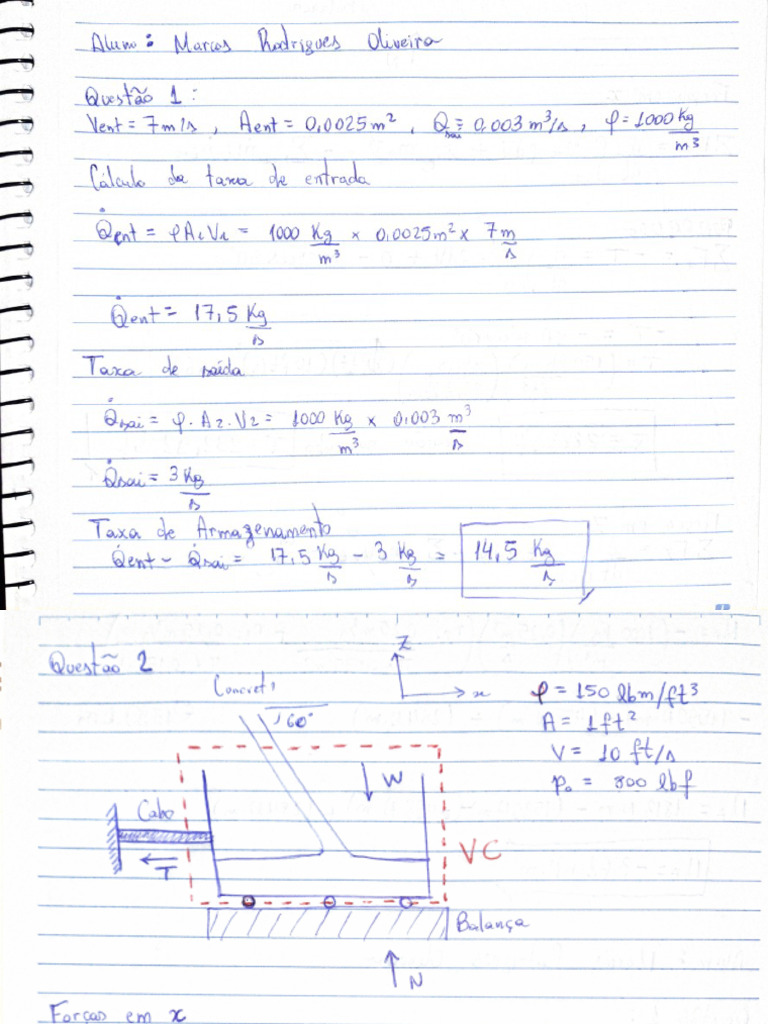 Aluno: Marcos Rodrigues Oliveira
Questão 1:
Vent = 7 m/s, Aent = 0,0025 m², Qsai = 0.003 m³/s, φ = 1000 Kg/m³
Cálculo da taxa de entrada
Q̇ent = φA₁V₁ = 1000 Kg/m³ × 0,0025 m² × 7 m/s
Q̇ent = 17,5 Kg/s
Taxa de saída
Q̇sai = φ.A₂.V₂ = 1000 Kg/m³ × 0,003 m³/s
Q̇sai = 3 Kg/s
Taxa de Armazenamento
Q̇ent - Q̇sai = 17,5 Kg/s - 3 Kg/s = 14,5 Kg/s
Questão 2
Z
x
Concreto
60°
φ = 150 lbm/ft³
A = 1 ft²
V = 10 ft/s
p₀ = 800 lbf
W
Cabo
T
VC
Balança
N
Forças em x